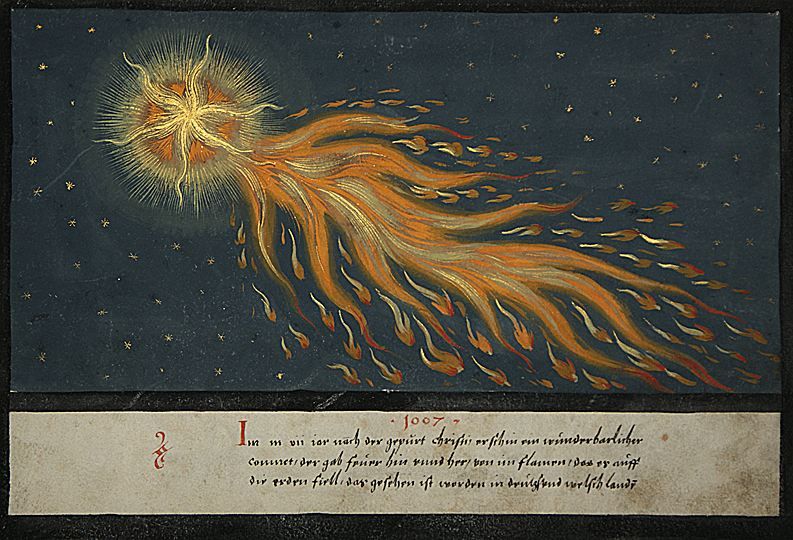 · 1007 ·
Im m vii iar nach der gepurt christi, erschin ein wunderbarlicher
commet, der gab feuer hin vnnd her, von im flamen, das er auff
die erden fiell, das gesehen ist worden in deutsch vnd welsch landᷤ